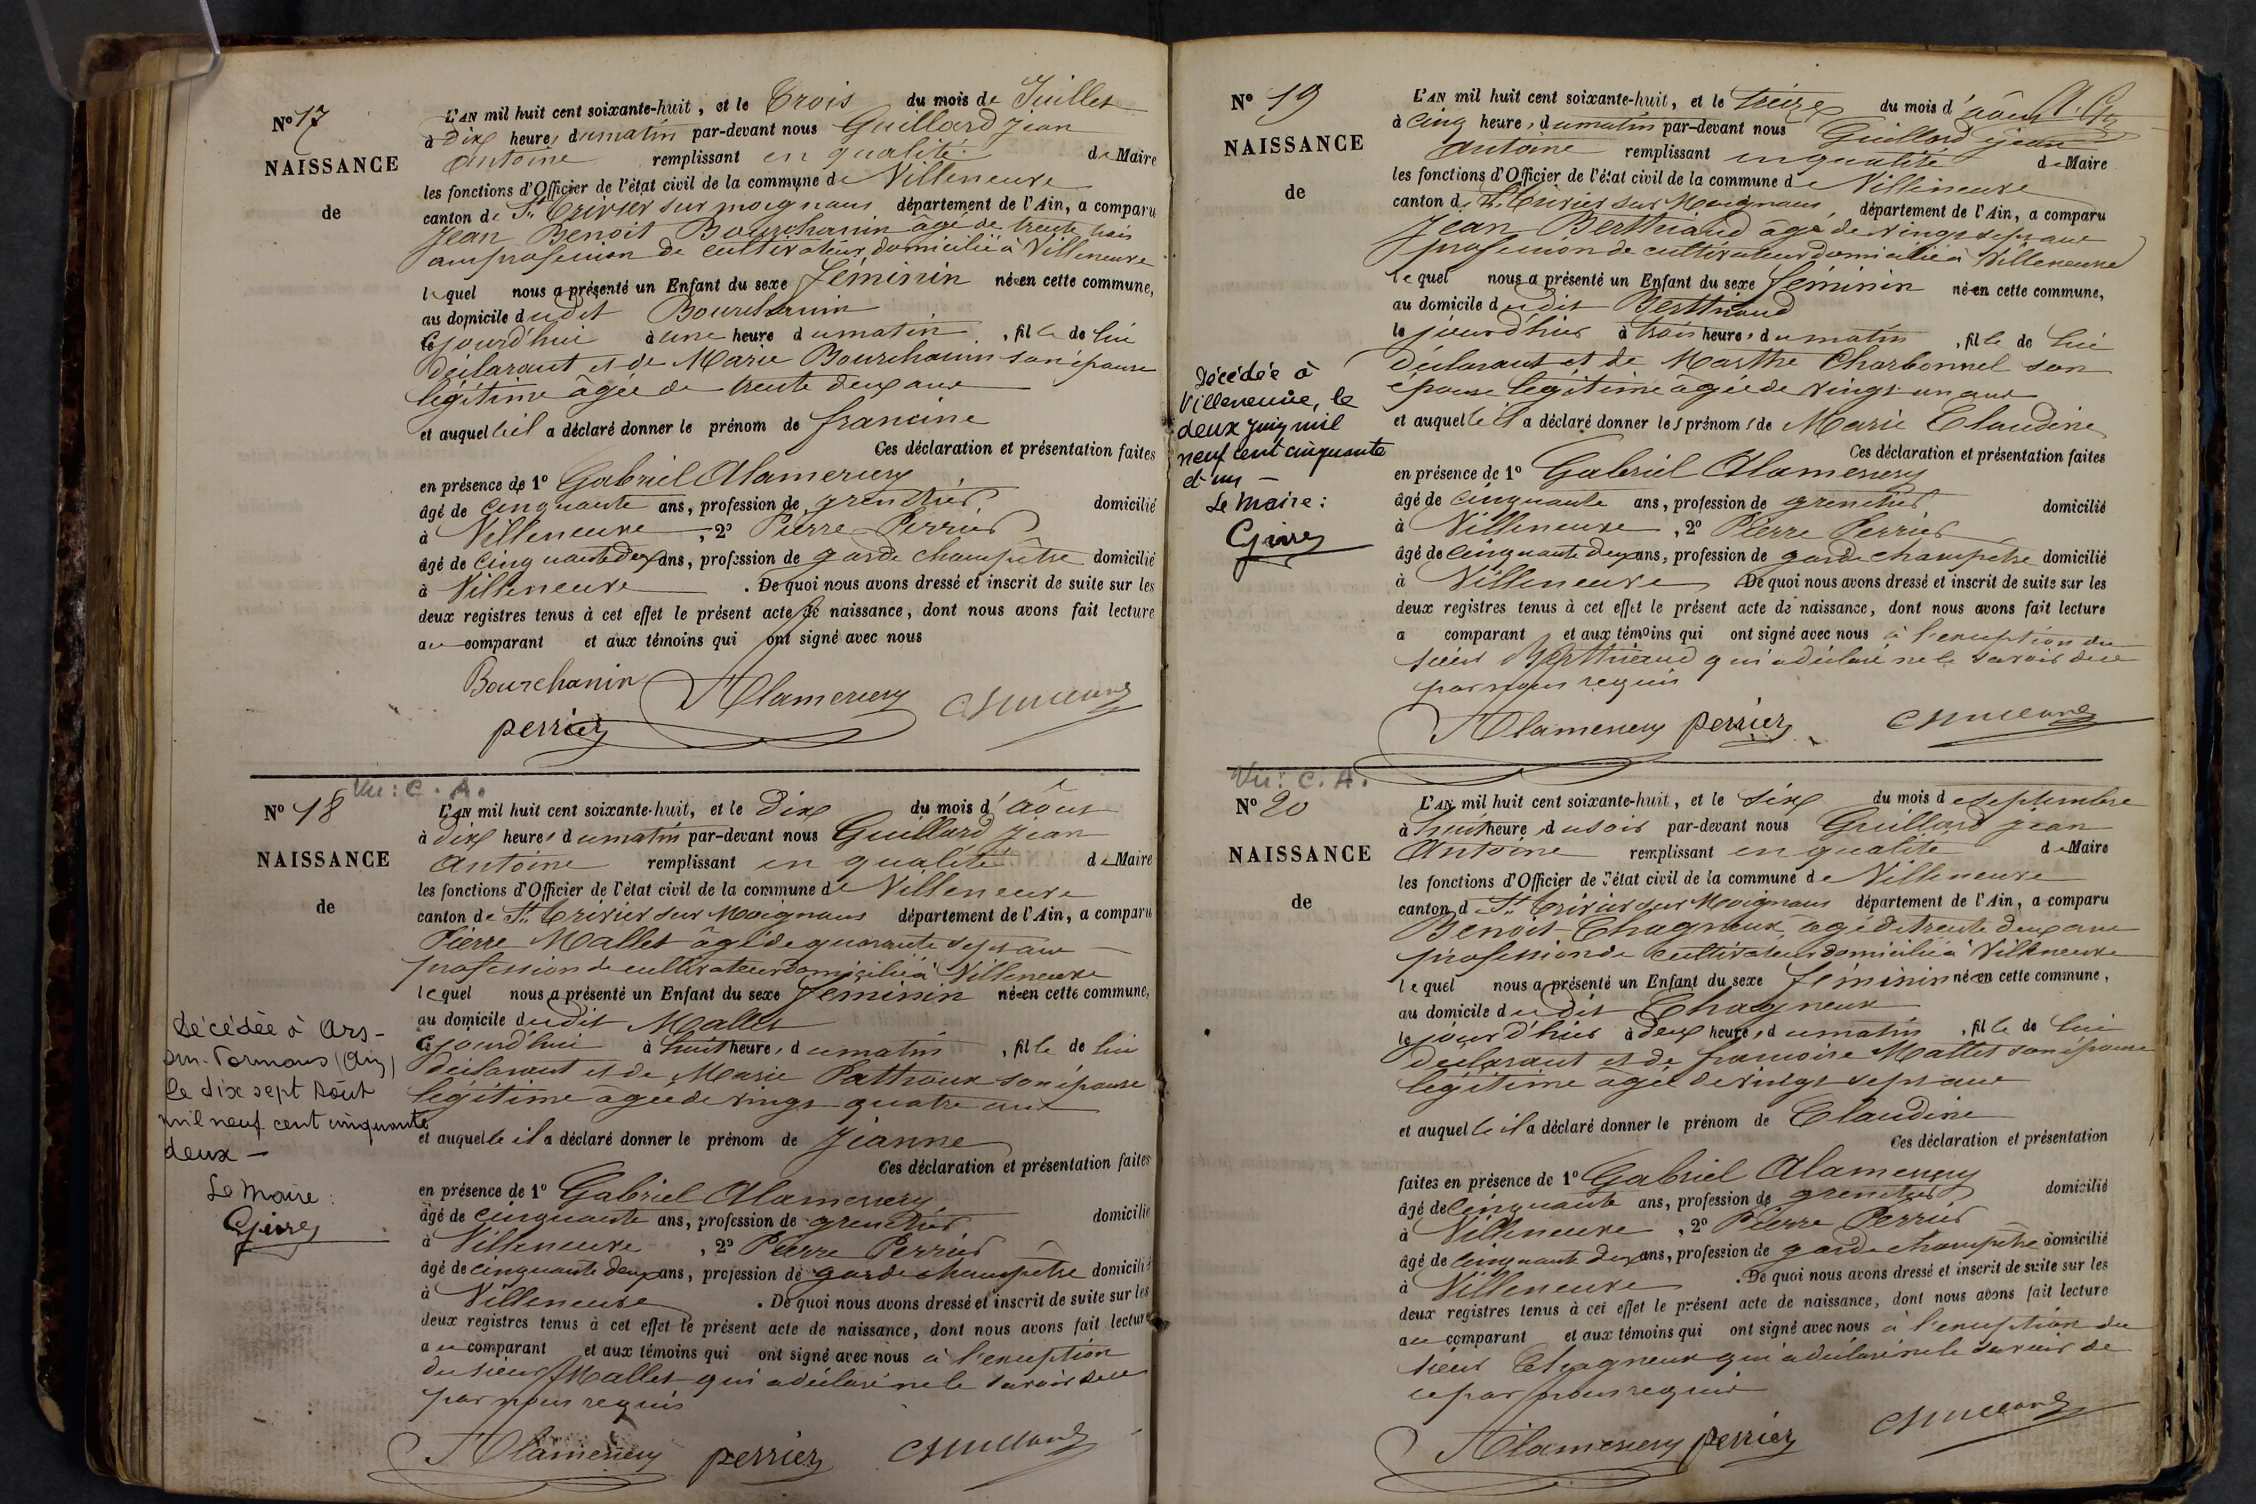 N° 17
NAISSANCE
de
L'AN mil huit cent soixante-huit, et le Trois du mois de Juillet
à Dix heures du matin par-devant nous Guillard Jean
Antoine remplissant en qualité de Maire
les fonctions d'Officier de l'état civil de la commune de Villeneuve
canton de St Trivier sur moignans département de l'Ain, a comparu
Jean Benoit Bourchanin âgé de trente trois
ans profession de cultivateur domicilié à Villeneuve
lequel nous a présenté un Enfant du sexe féminin née en cette commune,
au domicile dudit Bourchanin
cejourd'hui à une heure du matin, fille de lui
déclarant et de Marie Bourchanin son épouse
légitime âgée de trente deux ans
et auquelle il a déclaré donner le prénom de francine
Ces déclaration et présentation faites
en présence de 1° Gabriel Alamercery
âgé de cinquante ans, profession de grenetier domicilié
à Villeneuve, 2° Pierre Perrier
âgé de cinquante deux ans, profession de garde champêtre domicilié
à Villeneuve. De quoi nous avons dressé et inscrit de suite sur les
deux registres tenus à cet effet le présent acte de naissance, dont nous avons fait lecture
au comparant et aux témoins qui ont signé avec nous
Bourchanin Alamercery Guillard
perrier
Vu: C. A.
N° 18
NAISSANCE
de
L'AN mil huit cent soixante-huit, et le Dix du mois d'août
à dix heures du matin par-devant nous Guillard Jean
Antoine remplissant en qualité de Maire
les fonctions d'Officier de l'état civil de la commune de Villeneuve
canton de St Trivier sur Moignans département de l'Ain, a comparu
Pierre Mallet âgé de quarante sept ans
profession de cultivateur domicilié à Villeneuve
lequel nous a présenté un Enfant du sexe féminin née en cette commune,
au domicile dudit Mallet
cejourd'hui à huit heures du matin, fille de lui
déclarant et de Marie Pattroux son épouse
légitime âgée de vingt quatre ans
et auquelle il a déclaré donner le prénom de Jeanne
Ces déclaration et présentation faites
en présence de 1° Gabriel Alamercery
âgé de cinquante ans, profession de grenetier domicilié
à Villeneuve, 2° Pierre Perrier
âgé de cinquante deux ans, profession de garde champêtre domicilié
à Villeneuve. De quoi nous avons dressé et inscrit de suite sur les
deux registres tenus à cet effet le présent acte de naissance, dont nous avons fait lecture
au comparant et aux témoins qui ont signé avec nous à l'exception
du sieur Mallet qui a déclaré ne le savoir de ce
par nous requis
Alamercery perrier Guillard
décédée à Ars-
sur-Formans (Ain)
le dix sept Août
mil neuf cent cinquante
deux —
Le Maire:
N° 19
NAISSANCE
de
L'AN mil huit cent soixante-huit, et le treize du mois d'août
à cinq heures du matin par-devant nous Guillard Jean
Antoine remplissant en qualité de Maire
les fonctions d'Officier de l'état civil de la commune de Villeneuve
canton de St Trivier sur Moignans, département de l'Ain, a comparu
Jean Berthiaud âgé de vingt sept ans
profession de cultivateur domicilié à Villeneuve
lequel nous a présenté un Enfant du sexe féminin née en cette commune,
au domicile dudit Berthiaud
le jour d'hier à trois heures du matin, fille de lui
déclarant et de Marthe Charbonnel son
épouse légitime âgée de vingt un ans
et auquelle il a déclaré donner les prénoms de Marie Claudine
Ces déclaration et présentation faites
en présence de 1° Gabriel Alamercery
âgé de cinquante ans, profession de grenetier domicilié
à Villeneuve, 2° Pierre Perrier
âgé de cinquante deux ans, profession de garde champêtre domicilié
à Villeneuve De quoi nous avons dressé et inscrit de suite sur les
deux registres tenus à cet effet le présent acte de naissance, dont nous avons fait lecture
a comparant et aux témoins qui ont signé avec nous à l'exception du
sieur Berthiaud qui a déclaré ne le savoir de ce
par nous requis
Alamercery perrier Guillard
Décédée à
Villeneuve, le
deux juin mil
neuf cent cinquante
et un —
Le Maire:
Vu: C. A.
N° 20
NAISSANCE
de
L'AN mil huit cent soixante-huit, et le six du mois de septembre
à huit heure du soir par-devant nous Guillard Jean
Antoine remplissant en qualité de Maire
les fonctions d'Officier de l'état civil de la commune de Villeneuve
canton d St Trivier sur Moignans département de l'Ain, a comparu
Benoit Chagneux, âgé de trente deux ans
profession de cultivateur domicilié à Villeneuve
lequel nous a présenté un Enfant du sexe féminin née en cette commune,
au domicile dudit Chagneux
le jour d'hier à deux heures du matin, fille de lui
déclarant et de francoise Mallet son épouse
légitime âgée de vingt sept ans
et auquelle il a déclaré donner le prénom de Claudine
Ces déclaration et présentation
faites en présence de 1° Gabriel Alamercery
âgé de cinquante ans, profession de grenetier domicilié
à Villeneuve, 2° Pierre Perrier
âgé de cinquante deux ans, profession de garde champêtre domicilié
à Villeneuve. De quoi nous avons dressé et inscrit de suite sur les
deux registres tenus à cet effet le présent acte de naissance, dont nous avons fait lecture
au comparant et aux témoins qui ont signé avec nous à l'exception du
sieur Chagneux qui a déclaré ne le savoir de
ce par nous requis
Alamercery perrier Guillard